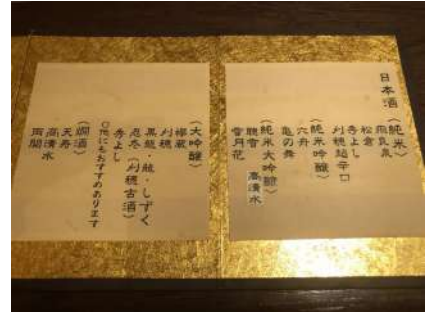 日本酒
（純米）
飛良泉
松倉
秀よし
刈穂超辛口
（純米吟醸）
六舟
亀の舞
（純米大吟醸）
高清水
雪月花
（大吟醸）
欅蔵
刈穂
黒龍・龍・しずく
忍冬（刈穂古酒）
秀よし
○他にもおすすめあります
（燗酒）
天寿
高清水
両関